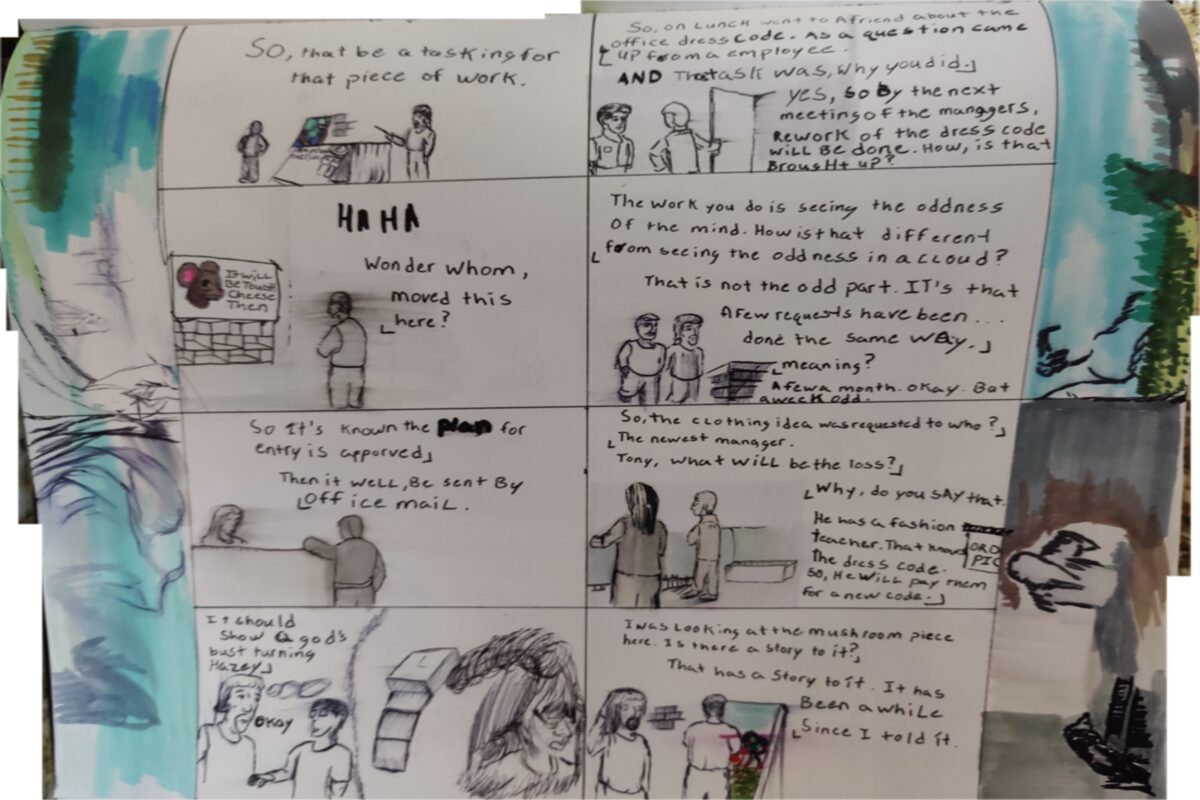 SO, that be a tasking for
that piece of work.
So, on Lunch went to A friend about the
office dress code. As a question came
up from a employee.
AND That ask was, Why you did
yes, so by the next
meeting of the managers,
Rework of the dress code
will Be done. How, is that
Brought up?
HA HA
It will
Be Tough
Cheese
Then
Wonder whom,
moved this
here?
The work you do is seeing the oddness
Of the mind. How is that different
from seeing the oddness in a cloud?
That is not the odd part. IT's that
A few requests have been ...
done the same way.
meaning?
A few a month. okay. But
a week odd.
So It's known the plan for
entry is apporved
Then it well, Be sent By
Office mail.
So, the clothing idea was requested to who?
The newest manager.
Tony, what will be the loss?
Why, do you say that.
He has a fashion
teacher. That knows
The dress code.
So, He will pay them
for a new code.
ORD
PIC
It should
show a god's
bust turning
Hazey
Okay
L
I was Looking at the mushroom piece
here. Is there a story to it?
That has a Story to it. It has
Been a while
Since I told it.